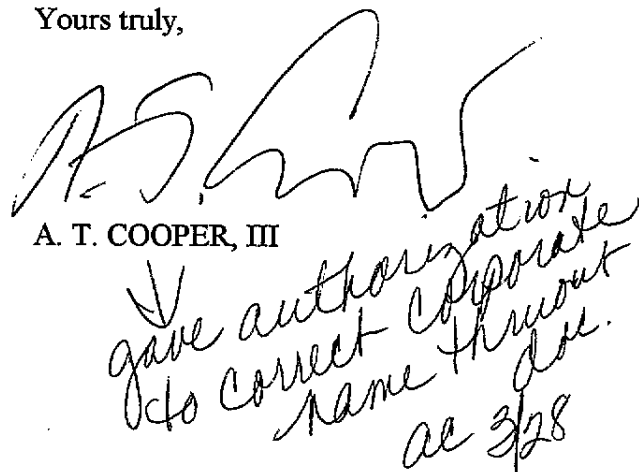 Yours truly,
A. T. Coop
A. T. COOPER, III
gave authorization
to correct corporate
name thruout
doc.
ac 3/28